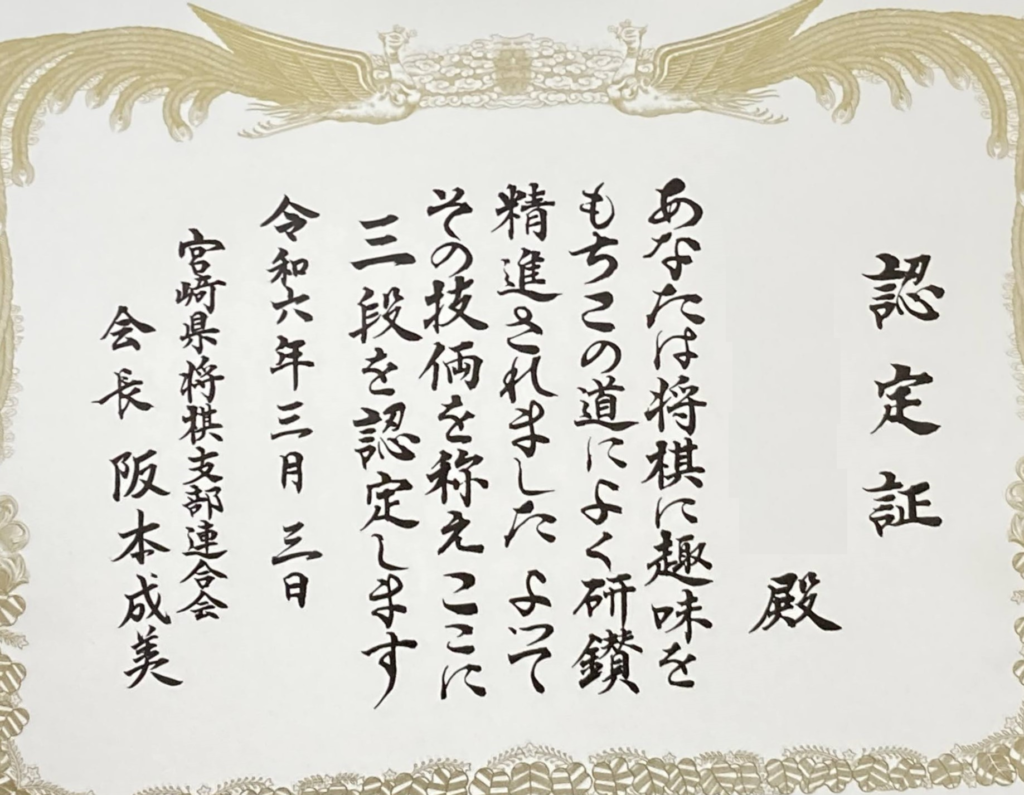 認定証
殿
あなたは将棋に趣味を
もちこの道によく研鑚
精進されました よつて
その技倆を称えここに
三段を認定します
令和六年三月三日
宮崎県将棋支部連合会
会長 阪本成美